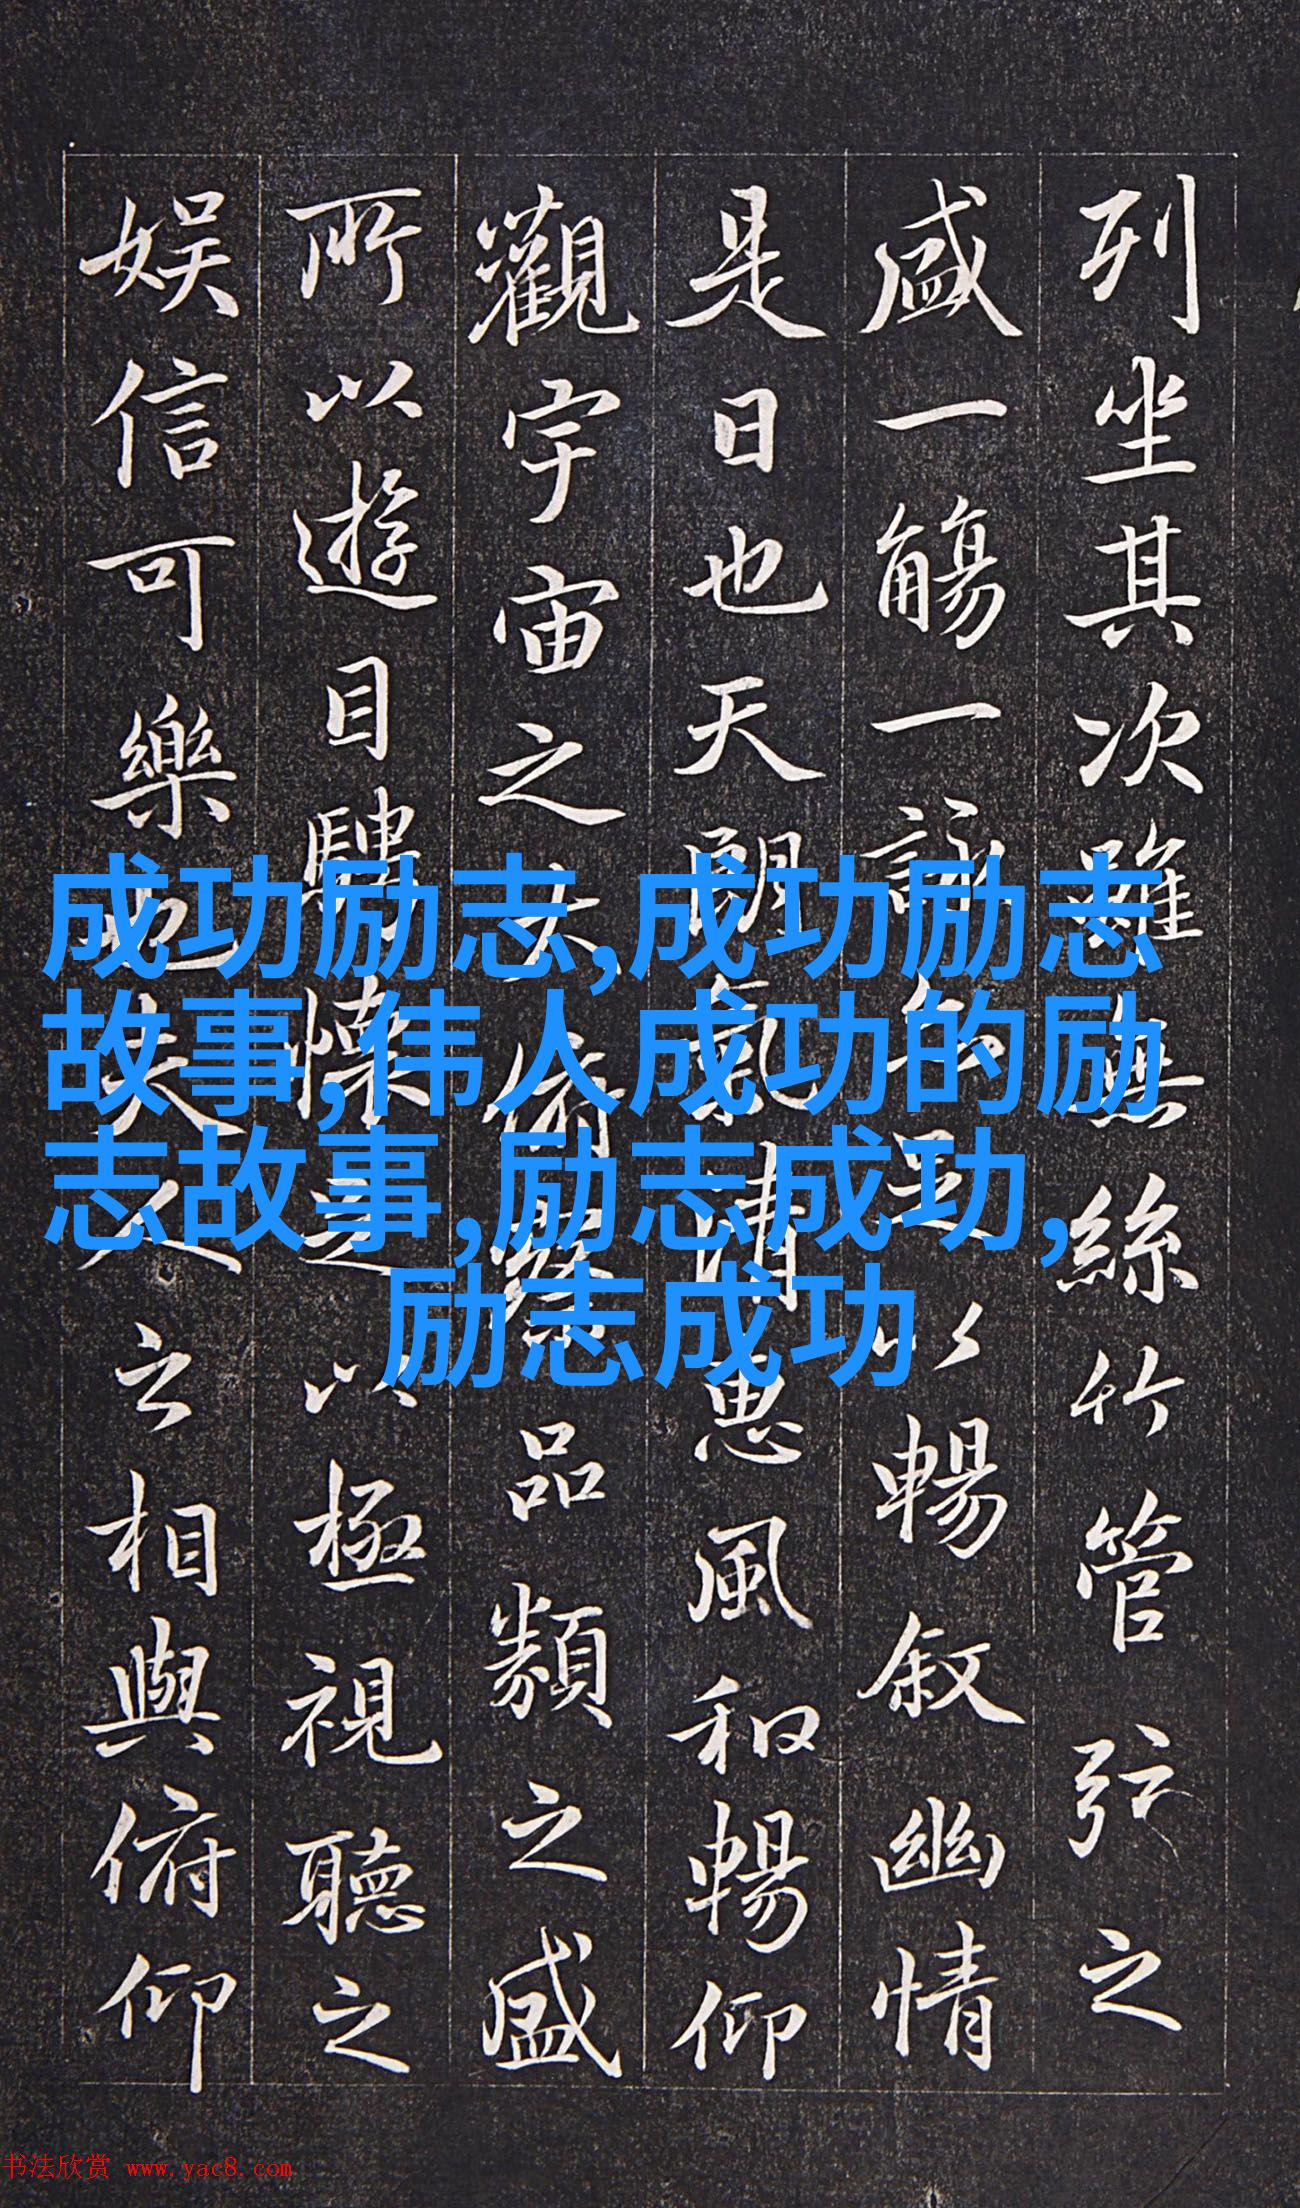 列坐其次雖無絲竹管弦之
盛一觴一詠亦足以暢敘幽情
是日也天朗氣清惠風和暢仰
觀宇宙之大俯察品類之盛
所以遊目騁懷足以極視聽之
娛信可樂也夫人之相與俯仰
成功励志,成功励志
故事,伟人成功的励
志故事,励志成功,
励志成功
书法欣赏 www.yac8.com